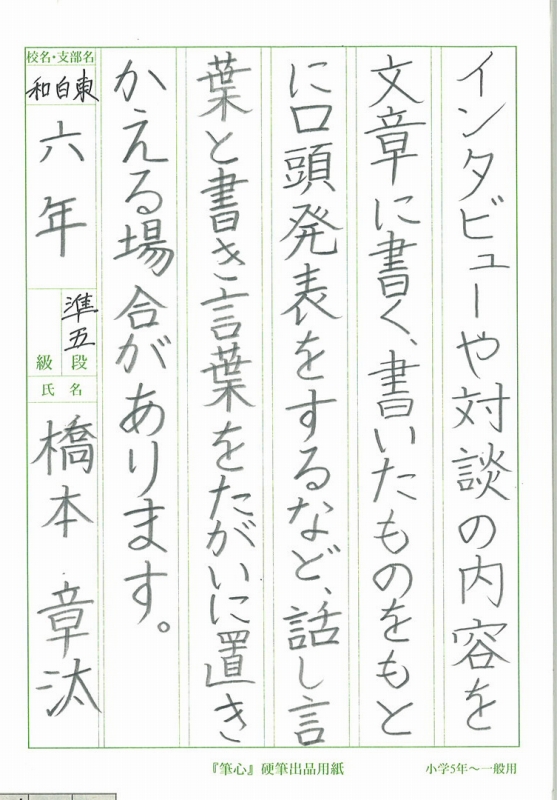 インタビューや対談の内容を
文章に書く、書いたものをもと
に口頭発表をするなど、話し言
葉と書き言葉をたがいに置き
かえる場合があります。
校名・支部名
和白東
六年
準五
級 段
氏名
橋本 章汰
『筆心』硬筆出品用紙
小学5年〜一般用